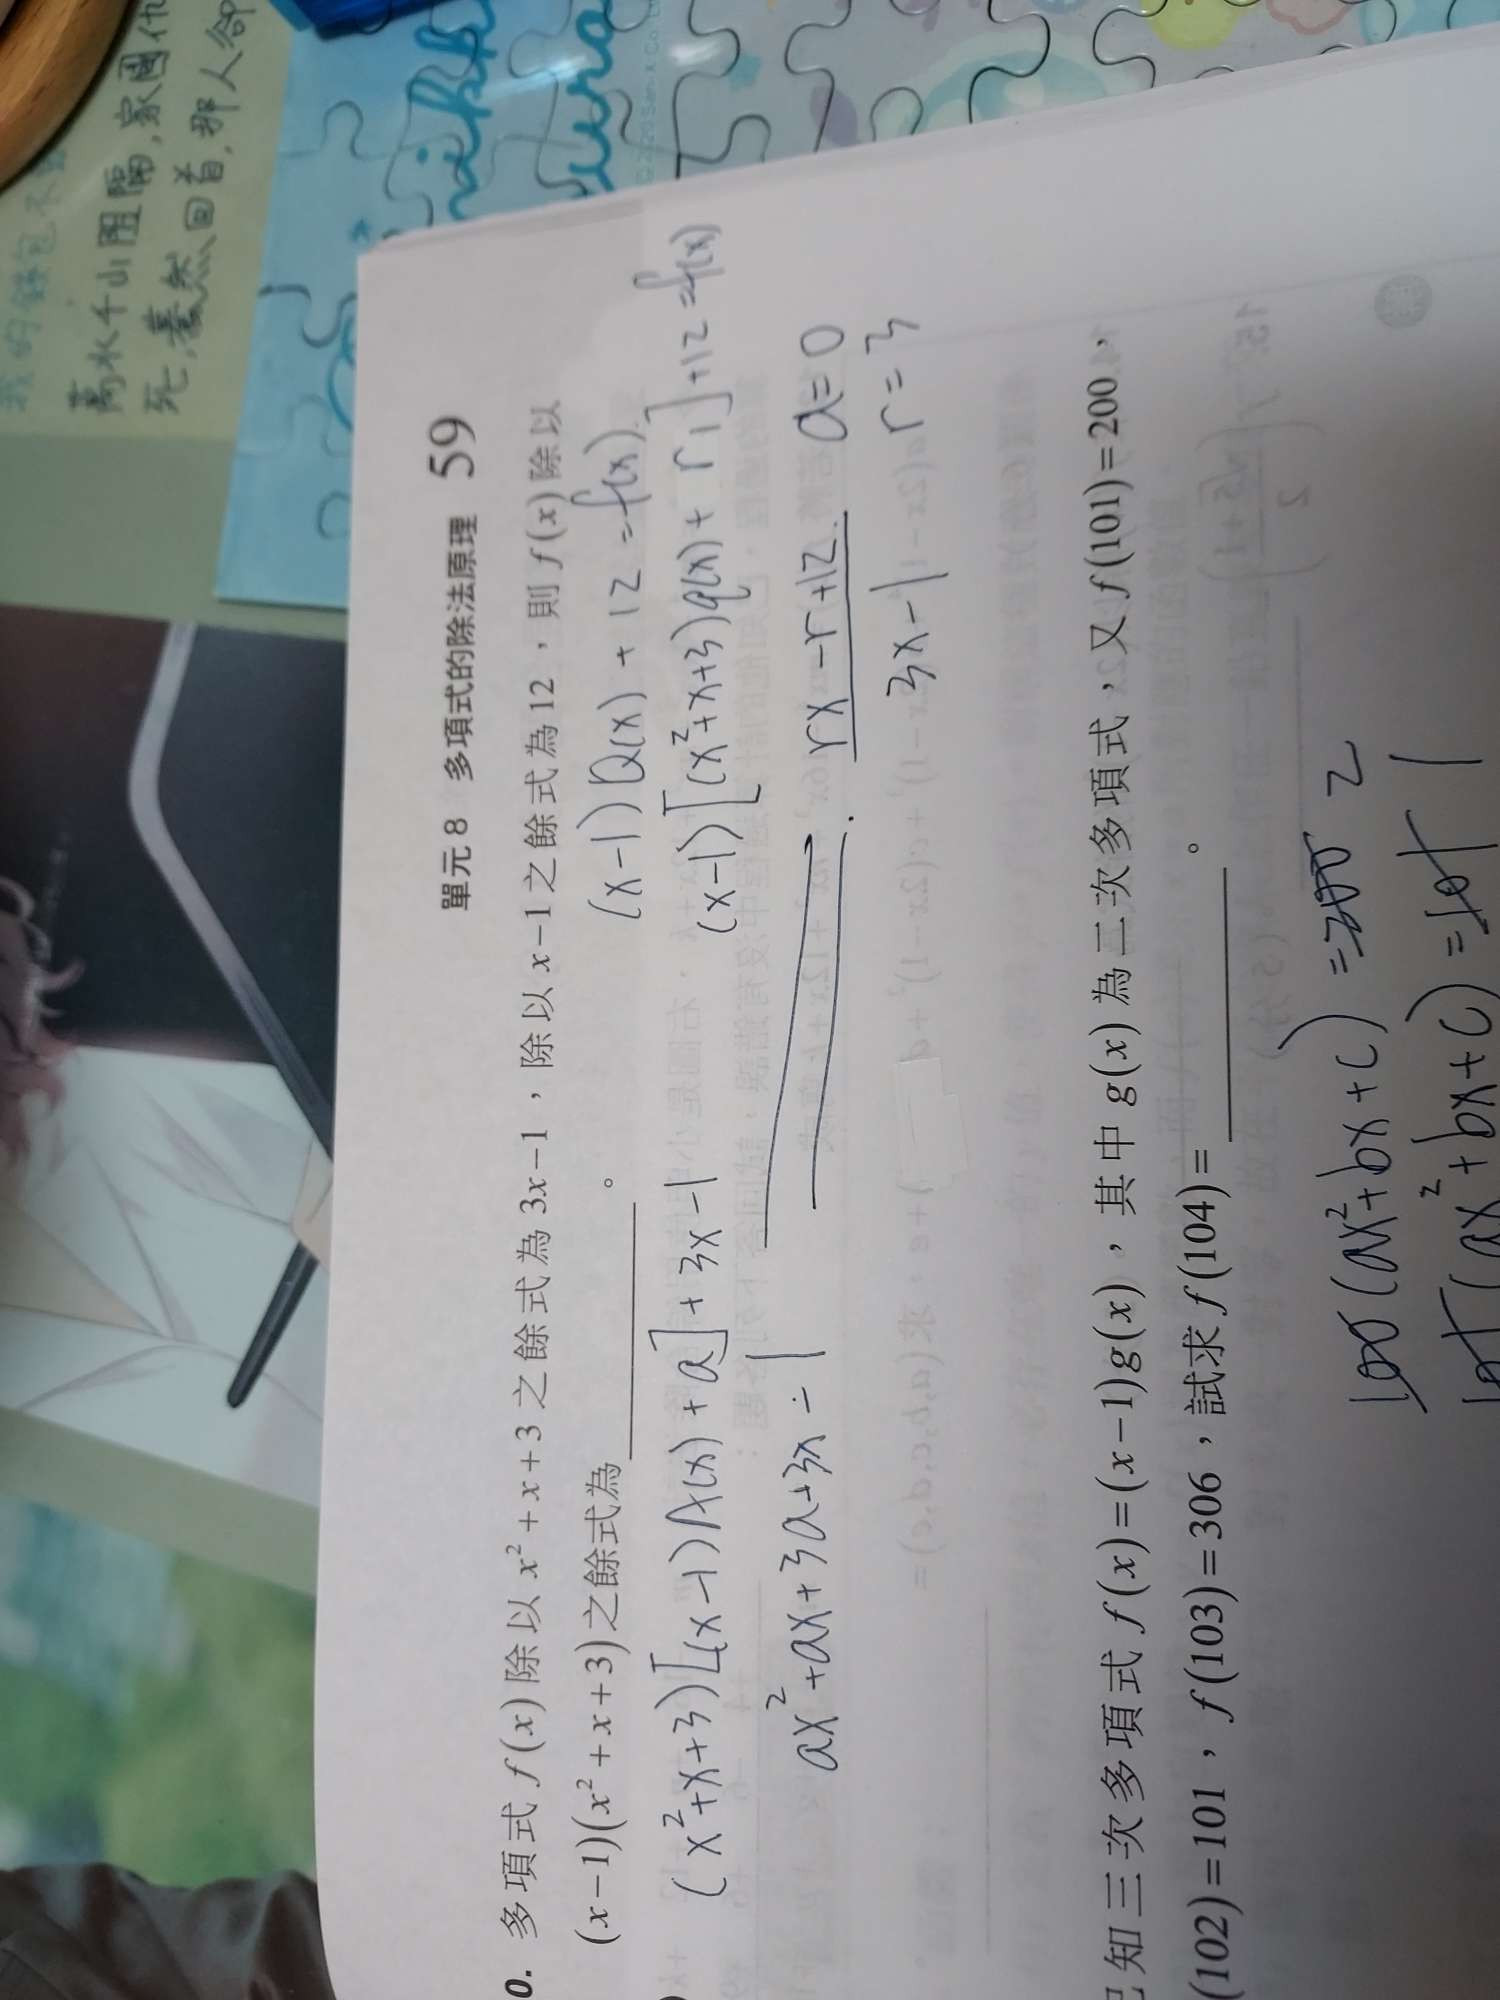 萬水千山阻隔,家國仇
死,驀然回首,那人卻
單元 8 多項式的除法原理 59
0. 多項式 f(x) 除以 x²+x+3 之餘式為 3x-1,除以 x-1 之餘式為 12,則 f(x) 除以
(x-1)(x²+x+3) 之餘式為________。
(x-1)Q(x)+12=f(x)
(x²+x+3)[(x-1)A(x)+a]+3x-1
(x-1)[(x²+x+3)q(x)+r]+12=f(x)
ax²+ax+3a+3x-1
rx-r+12 a=0
3x-1 r=3
已知三次多項式 f(x)=(x-1)g(x),其中 g(x) 為二次多項式,又 f(101)=200,
(102)=101,f(103)=306,試求 f(104)=________。
100(ax²+bx+c)=200 2
101(ax²+bx+c)=101 1